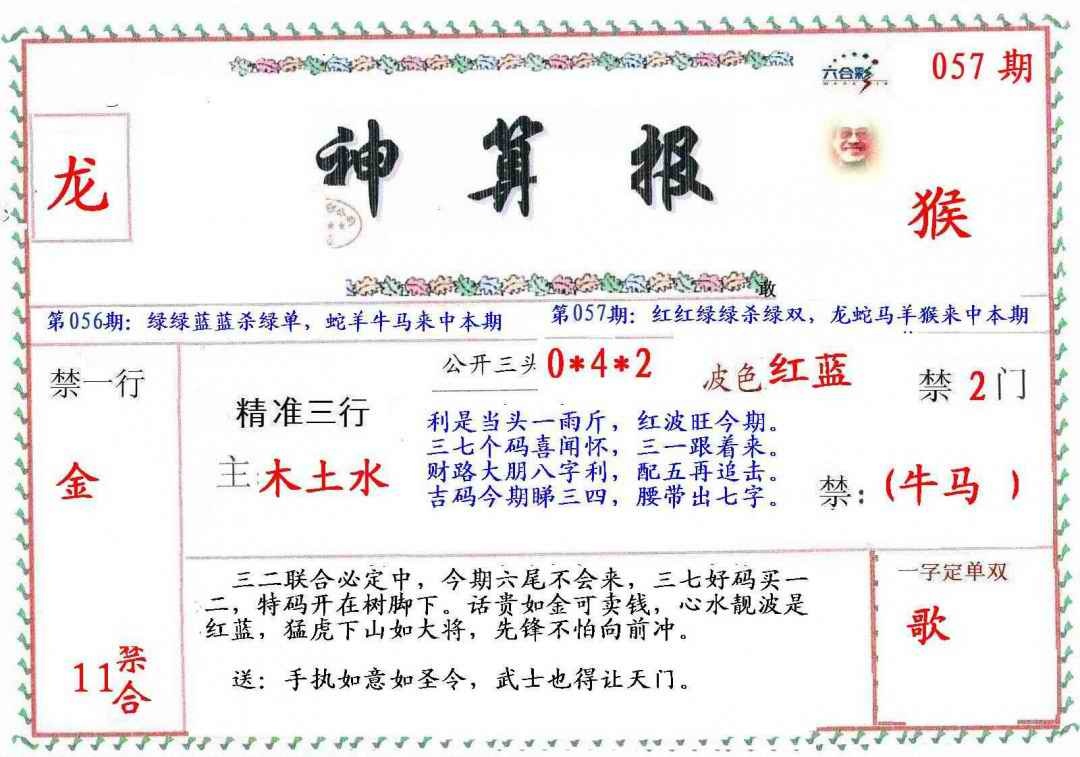 六合彩
057 期
龙
神算报
猴
敢
第056期：绿绿蓝蓝杀绿单，蛇羊牛马来中本期
第057期：红红绿绿杀绿双，龙蛇马羊猴来中本期
禁一行
金
11禁合
精准三行
主:木土水
公开三头 0*4*2
波色红蓝
利是当头一雨斤，红波旺今期。
三七个码喜闻怀，三一跟着来。
财路大朋八字利，配五再追击。
吉码今期睇三四，腰带出七字。
禁 2 门
禁：(牛马 )
三二联合必定中，今期六尾不会来，三七好码买一
二，特码开在树脚下。话贵如金可卖钱，心水靓波是
红蓝，猛虎下山如大将，先锋不怕向前冲。
送：手执如意如圣令，武士也得让天门。
一字定单双
歌